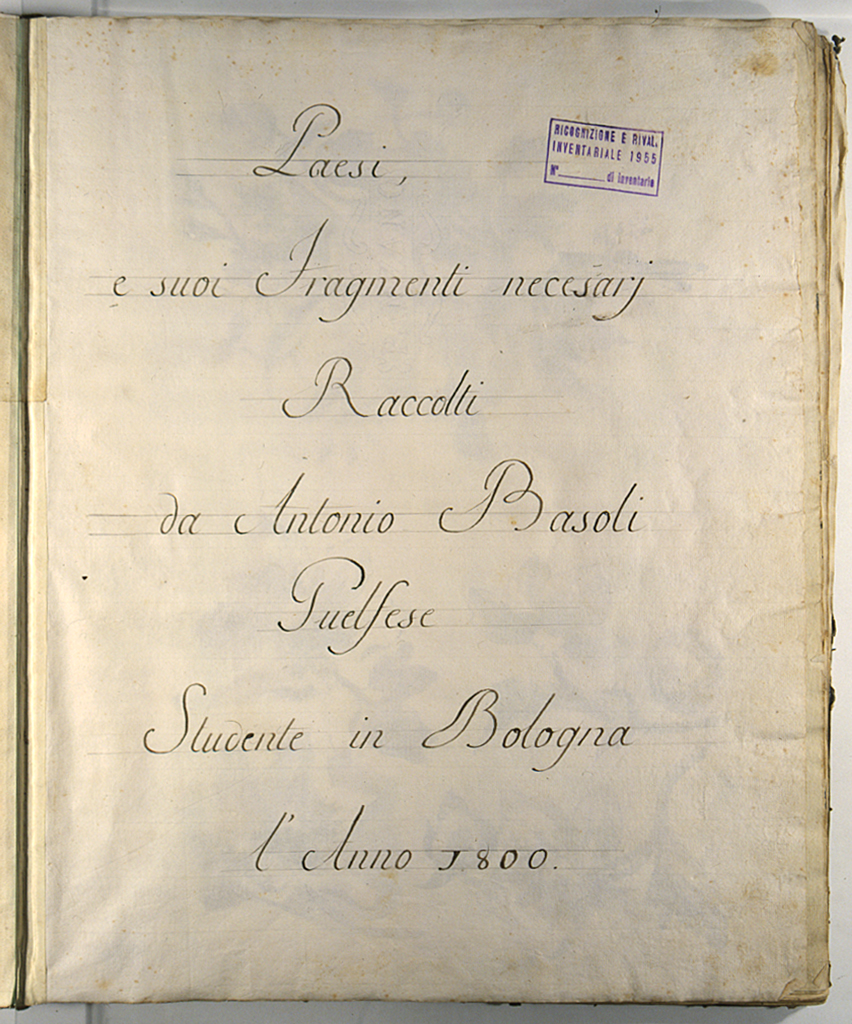 Paesi,
RICOGNIZIONE E RIVAL.
INVENTARIALE 1955
N° di inventario
e suoi Fragmenti necesarj
Raccolti
da Antonio Basoli
Guelfese
Studente in Bologna
l'Anno 1800.